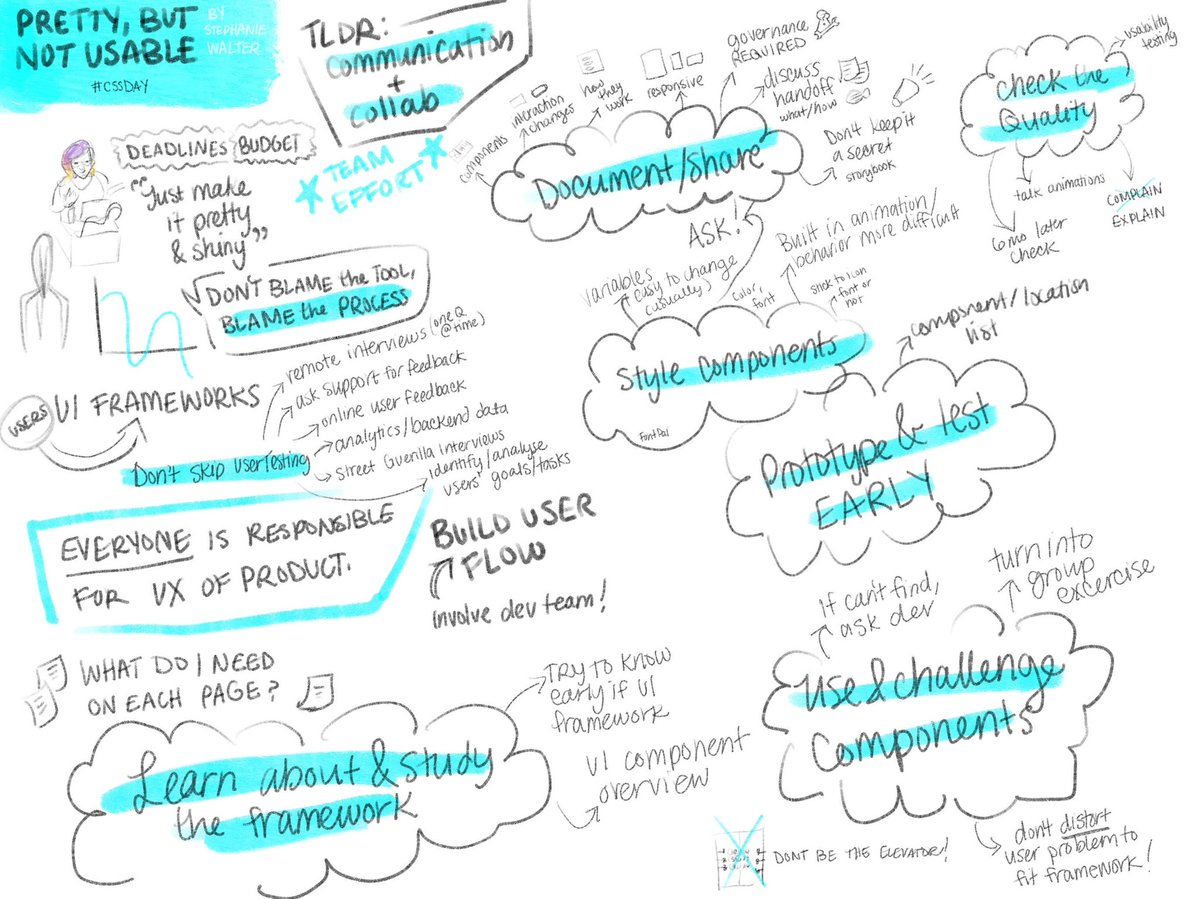 PRETTY, BUT
NOT USABLE
BY
STEPHANIE
WALTER
#CSSDAY
TLDR:
Communication
+
Collab
TEAM
EFFORT
DEADLINES
BUDGET
"Just make
it pretty
& shiny"
DON'T BLAME the TOOL,
BLAME the PROCESS
USERS
UI FRAMEWORKS
Don't SKIP USER TESTING
remote interviews (one Q
@ time)
ask support for feedback
online user feedback
analytics/backend data
street Guerilla Interviews
identify/analyse
users' goals/tasks
EVERYONE IS RESPONSIBLE
FOR UX OF PRODUCT.
BUILD USER
FLOW
involve dev team!
WHAT DO I NEED
ON EACH PAGE?
Learn about & study
the framework
TRY to know
early if UI
framework
UI component
overview
Document/share
components
interaction
changes
how
they
work
responsive
governance
REQUIRED
discuss
handoff
what/how
Don't keep it
a secret
storybook
ASK!
Style components
variables
easy to change
(usually)
color,
font
Built in animation/
behavior more difficult
stick to icon
font or
not
FontPal
Prototype & test
EARLY
component/location
list
Use & challenge
Components
if can't find,
ask dev
turn into
group
excercise
don't distort
user problem to
fit framework!
DONT BE THE ELEVATOR!
Check the
Quality
usability
testing
talk animations
6 mo later
check
COMPLAIN
EXPLAIN